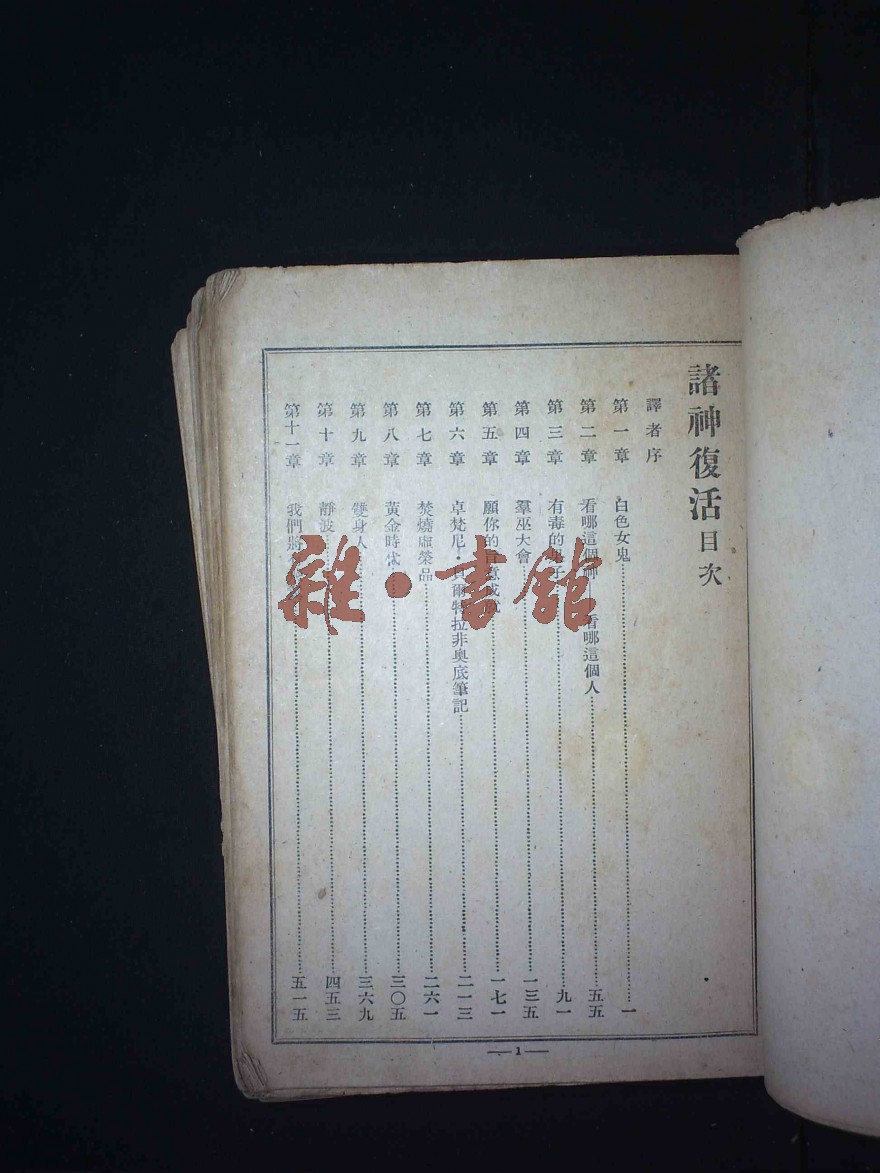 諸神復活 目次
譯者序
第一章 白色女鬼 一
第二章 看哪這個神 看哪這個人 五五
第三章 有毒的 九一
第四章 羣巫大會 一三五
第五章 願你的 一七一
第六章 卓梵尼·貝爾特拉非奧底筆記 二一三
第七章 焚燒虛榮品 二六一
第八章 黃金時代 三〇五
第九章 雙身人 三六九
第十章 靜波 四五三
第十一章 我們將 五一五
—1—
雜·書館